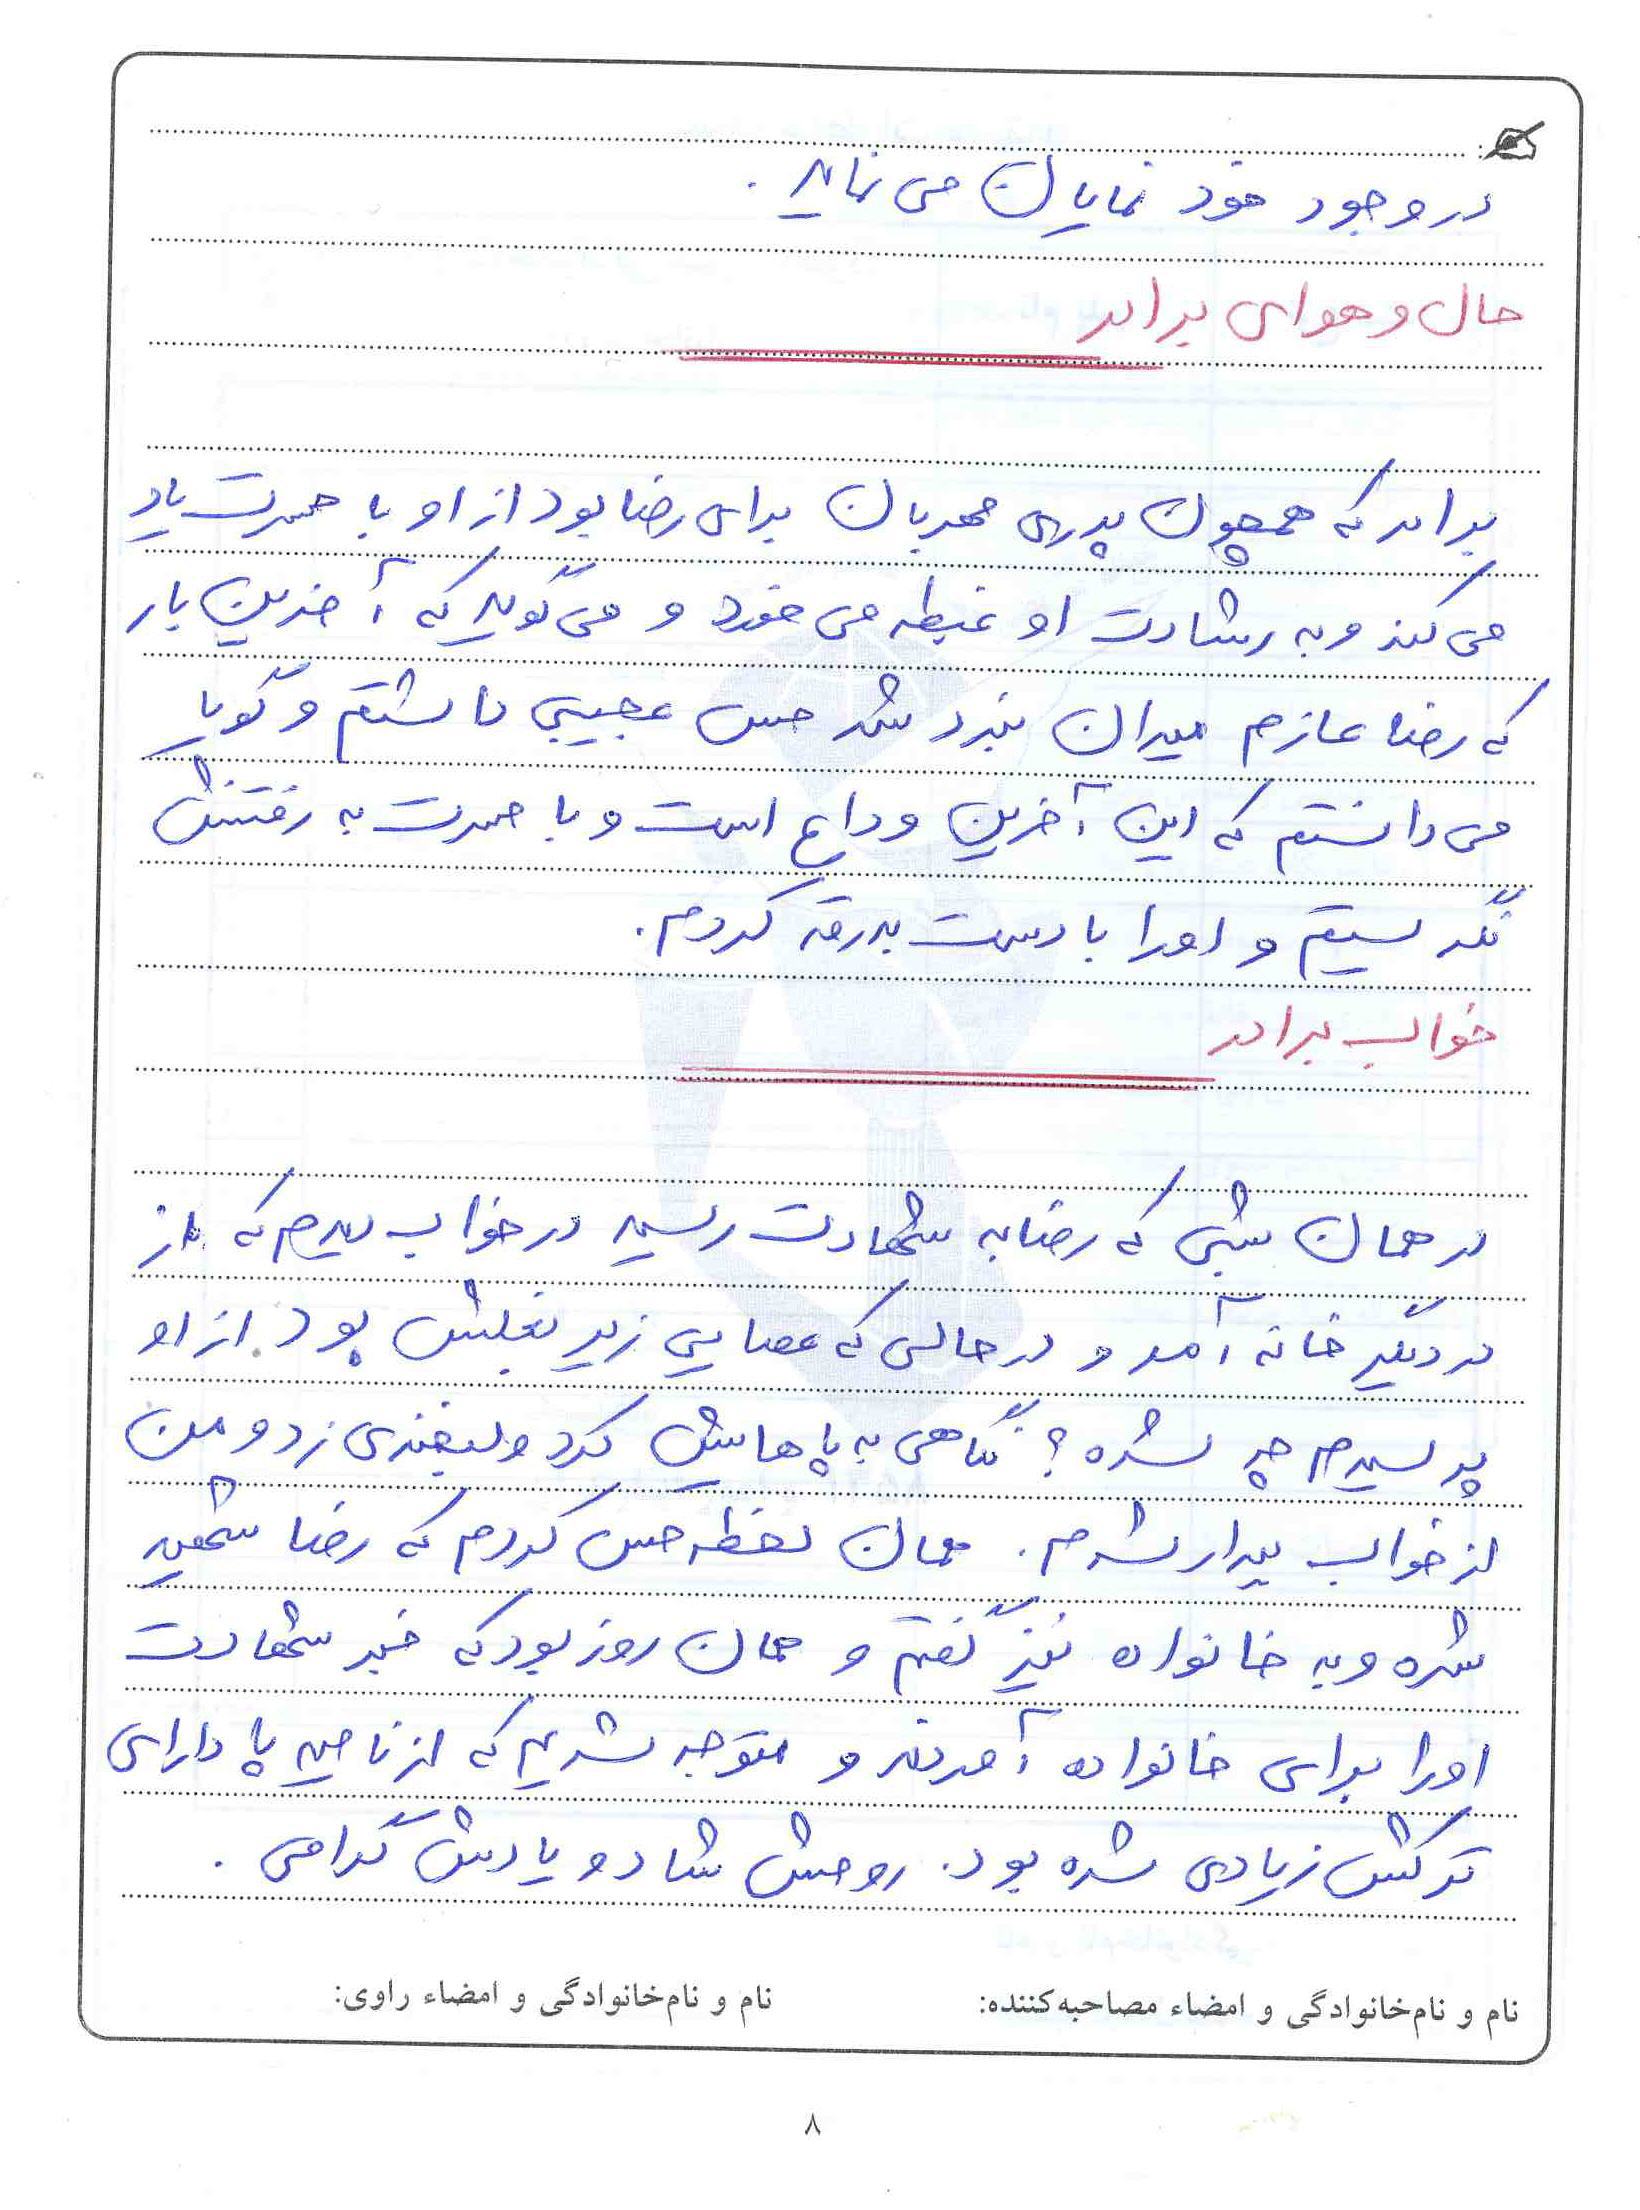 در وجود خود نمایان می نماید.
حال و هوای برادر
برادر که همچون پدری مهربان برای رضا بود از او با حسرت یاد
می کند و به رشادت او غبطه می خورد و می گوید که آخرین بار
که رضا عازم میدان نبرد شد حس عجیبی داشتم و گویا
می دانستم که این آخرین وداع است و با حسرت به رفتنش
نگریستم و او را با دست بدرقه کردم.
خواب برادر
در همان شبی که رضا به شهادت رسید در خواب دیدم که از
در دیگر خانه آمد و در حالی که عصایی زیر بغلش بود از او
پرسیدم چه شده؟ نگاهی به پاهایش کرد و لبخندی زد و من
از خواب بیدار شدم. همان لحظه حس کردم که رضا شهید
شده و به خانواده نیز گفتم و همان روز بود که خبر شهادت
او را برای خانواده آمدند و متوجه شدیم که از ناحیه پا دارای
ترکش زیادی شده بود. روحش شاد و یادش گرامی.
نام و نام‌خانوادگی و امضاء مصاحبه‌کننده: نام و نام‌خانوادگی و امضاء راوی:
۸